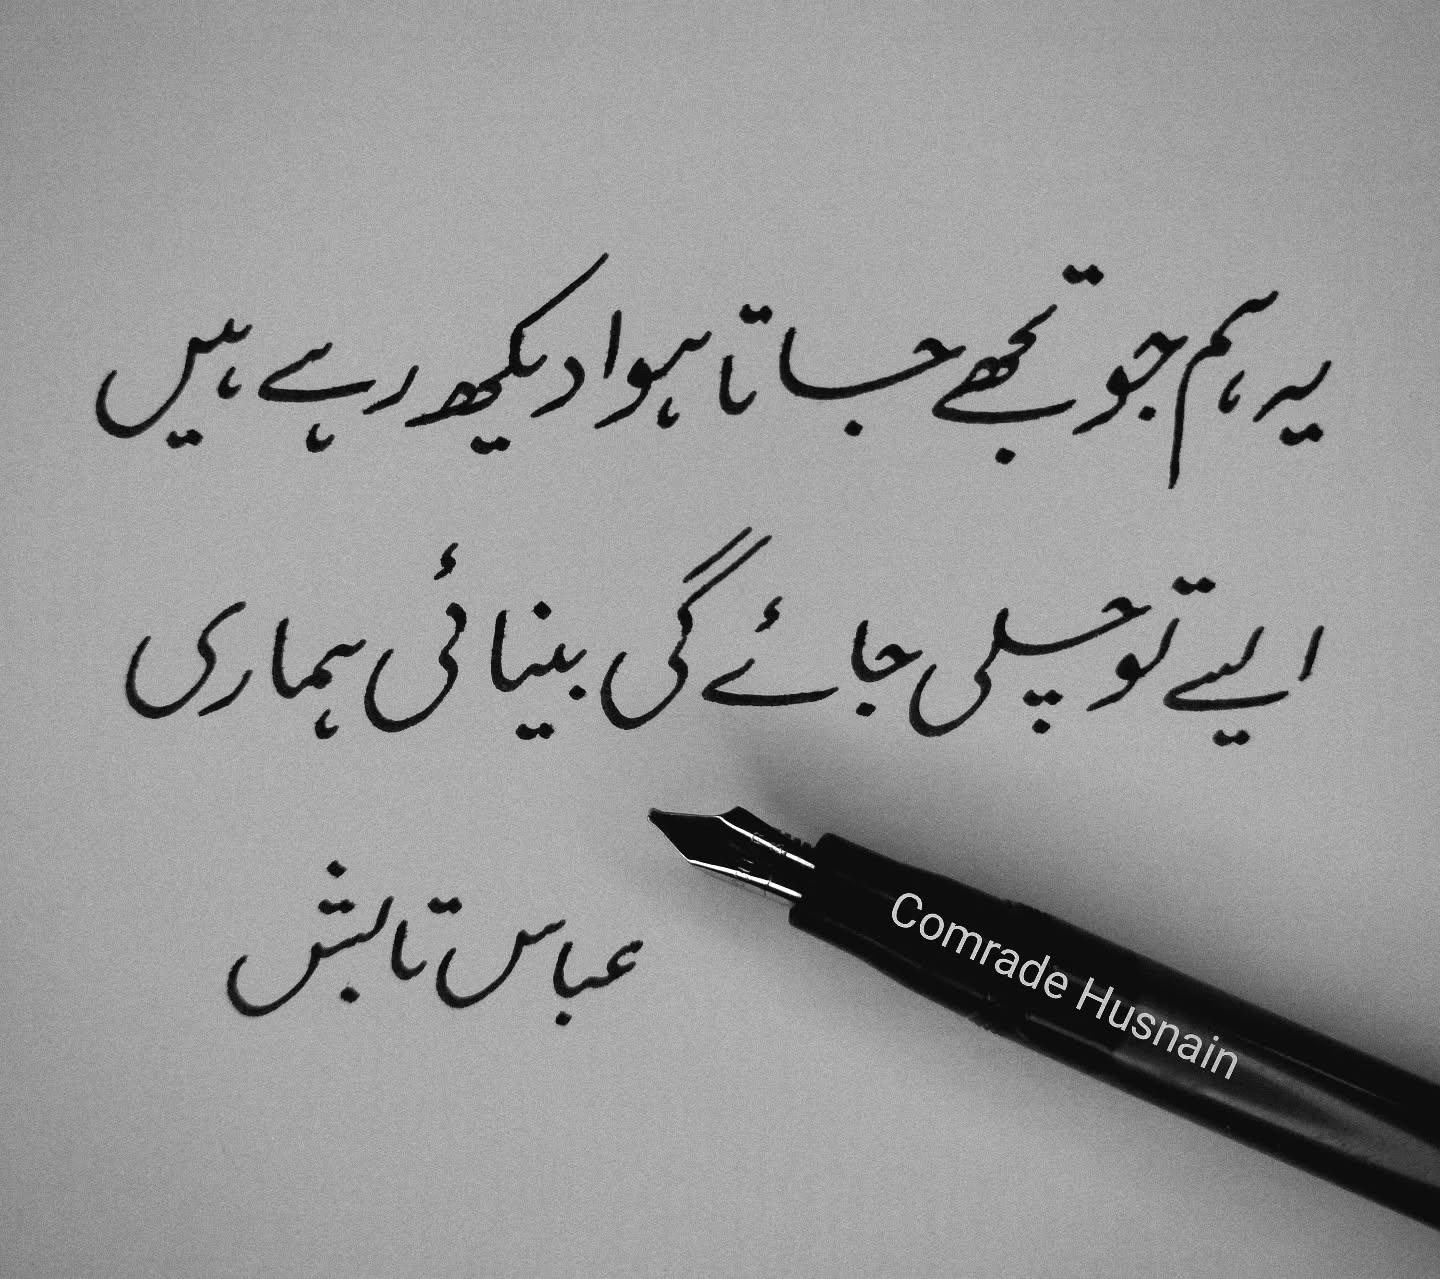 یہ ہم جو تجھے جاتا ہوا دیکھ رہے ہیں
ایسے تو چلی جائے گی بینائی ہماری
عباس تابش
Comrade Husnain